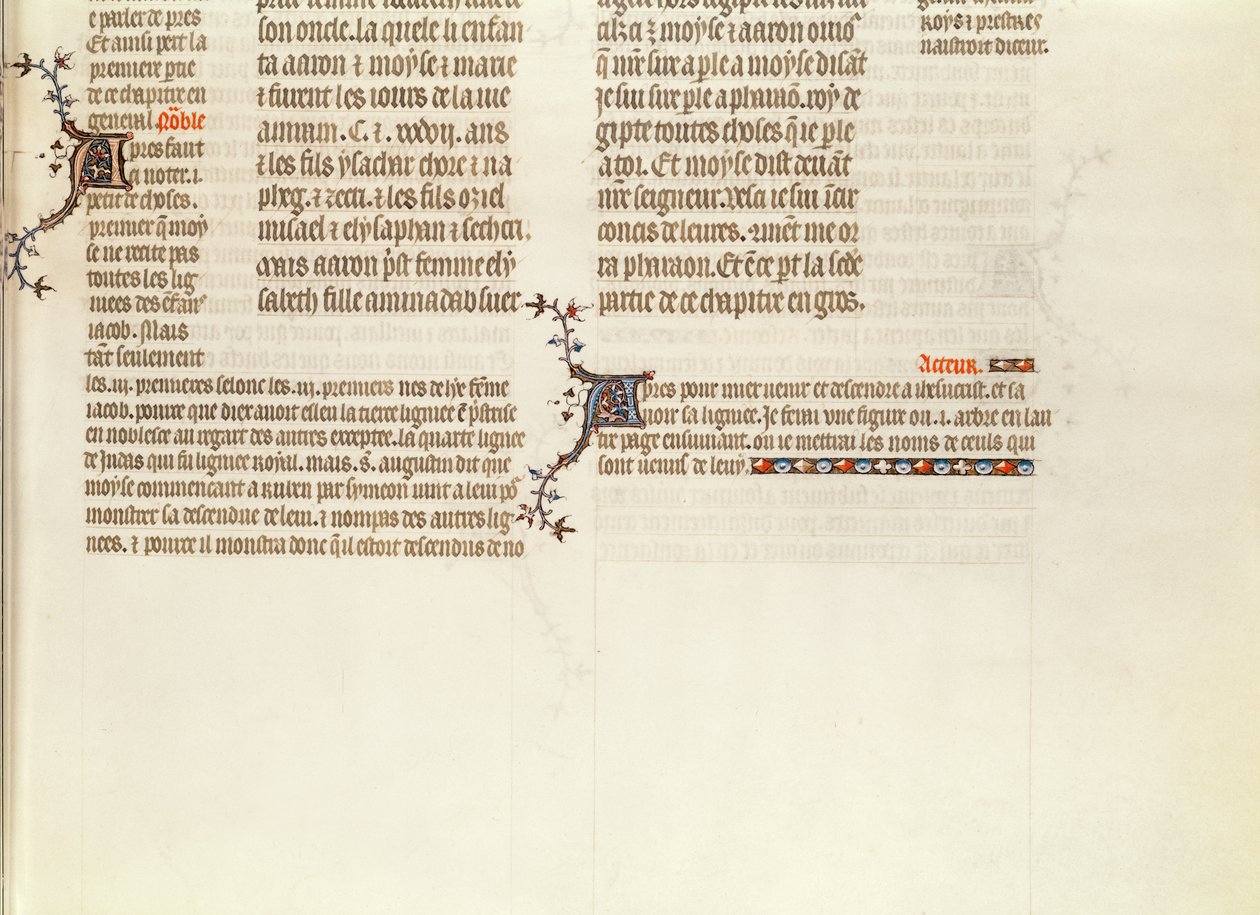 e parler de pres
Et ainsi pert la
premiere ptie
de ce chapitre en
general. Nõble
Apres faut
a noter .i.
petit de choses.
premier q̃ moy
se ne recite pas
toutes les lig
niees des
iacob. Mais
tãt seulement
les .iij. premieres selonc les .iij. premiers nes de lye fẽme
iacob. pource que dieu auoit esleu la tierce ligniee ẽ pstrise
en noblesce au regart des autres excepte. la quarte lignee
de Iudas qui fu lignee Royal. mais .s̃. augustin dit que
moyse commencant a Ruben par symeon uint a leui põ
monstrer sa descendue de leui. ⁊ non pas des autres lig
nees. ⁊ pource il monstra donc q̃il estoit descendus de no
son oncle. la quele li enfan
ta aaron ⁊ moyse ⁊ marie
⁊ furent les iours de la uie
amram. C. ⁊ .xxxvij. ans
⁊ les fils ysachar chore ⁊ na
pheg. ⁊ zecri. ⁊ les fils oziel
misael ⁊ elysaphan ⁊ sechri.
Mais aaron p̃st femme ely
sabeth fille aminadab suer
⁊ moyse ⁊ aaron
q̃ nr̃e sire aple a moyse disãt
Je sui sire ple a pharaõ. roy de
gipte toutes choses q̃ ie ple
a toi. Et moyse dist deuãt
nr̃e seigneur. Vesci ie sui ĩcir
concis de leures. 9mẽt me or
ra pharaon. Et ẽ ce pt la sede
partie de ce chapitre en gros.
Acteur.
Apres pour mier uenir et descendre a ihesucrist. et sa
uoir sa lignee. Je ferai vne figure ou .i. arbre en lau
tre page ensuiuant. ou ie mettrai les noms de ceuls qui
sont uenus de leuy.
Roys ⁊ prestres
naistroit dieeur.